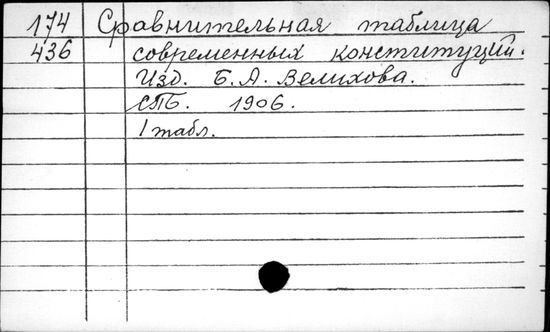 174 Сравнительная таблица
436 современных конституций.
Изд. Б. А. Велихова.
СПБ. 1906.
1 табл.